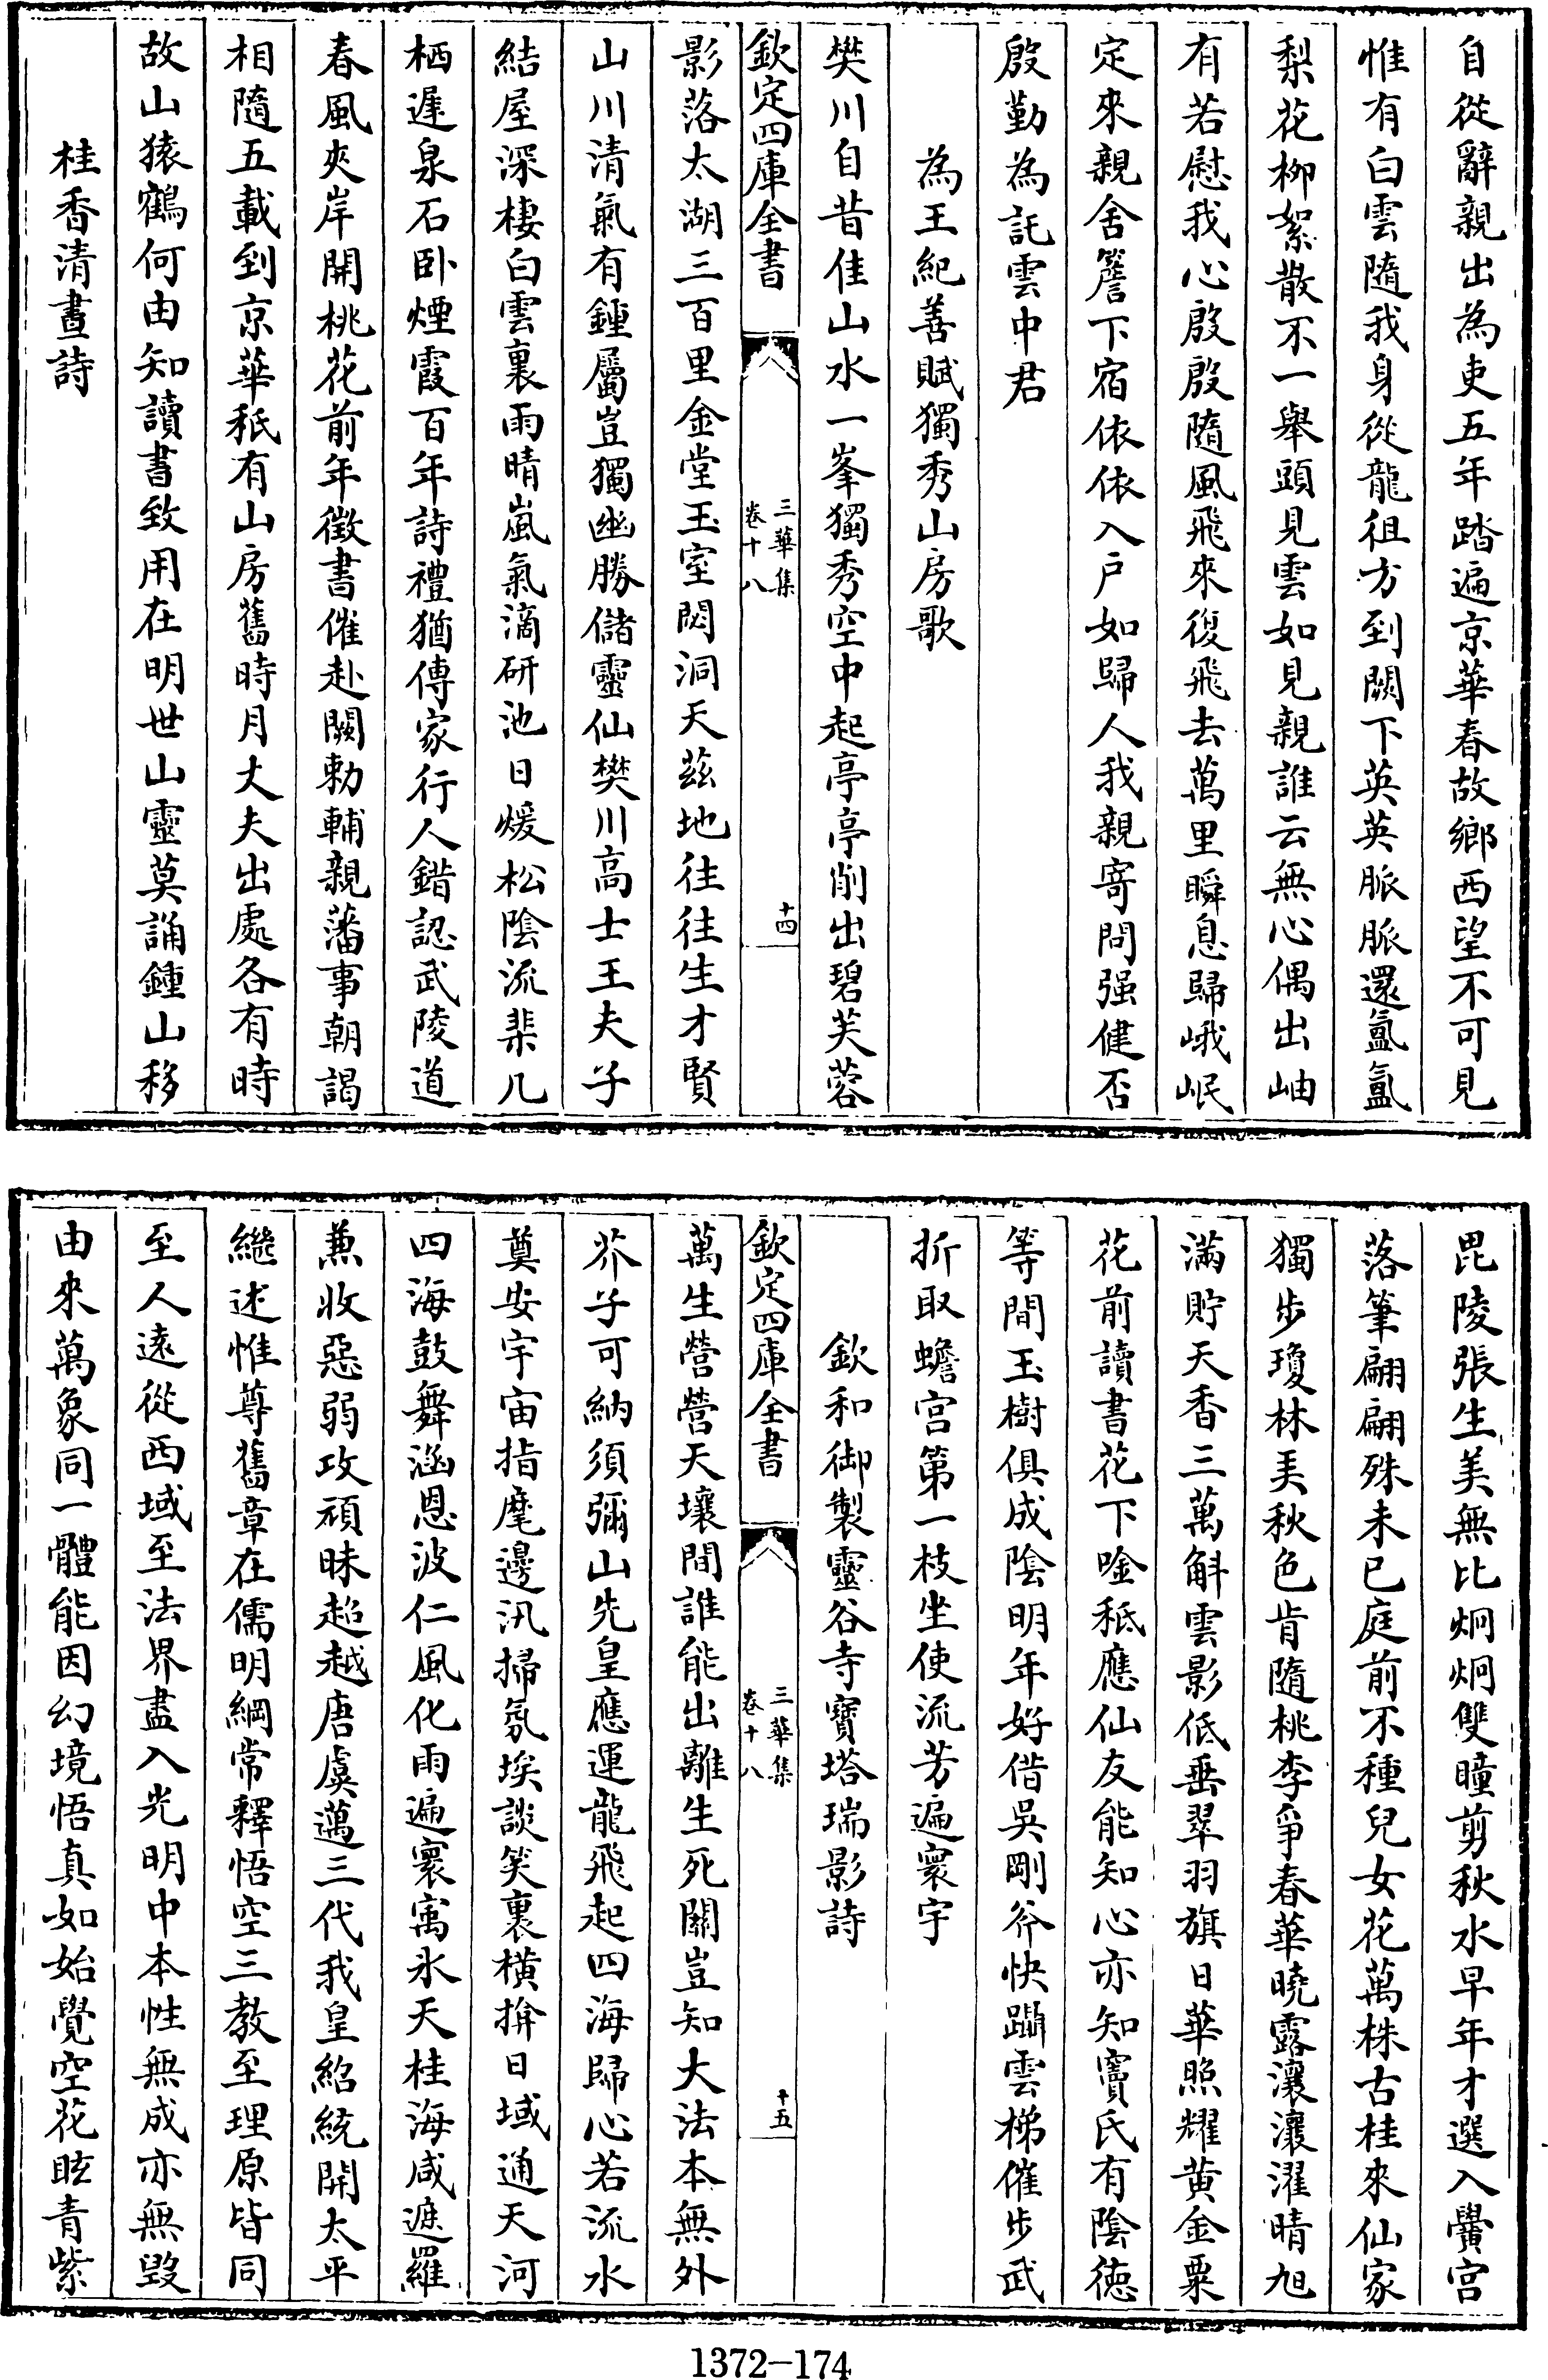 自從辭親出為吏五年踏遍京華春故鄉西望不可見
惟有白雲隨我身從龍徂方到闕下英英脈脈還氳氳
梨花柳絮散不一舉頭見雲如見親誰云無心偶出岫
有若慰我心殷殷隨風飛來復飛去萬里瞬息歸峨岷
定來親舍簷下宿依依入戶如歸人我親寄問强健否
殷勤為託雲中君
為王紀善賦獨秀山房歌
樊川自昔佳山水一峯獨秀空中起亭亭削出碧芙蓉
欽定四庫全書
三華集
卷十八
十四
影落太湖三百里金堂玉室閟洞天茲地往往生才賢
山川清氣有鍾屬豈獨幽勝儲靈仙樊川高士王夫子
結屋深棲白雲裏雨晴嵐氣滴研池日煖松陰流棐几
栖遲泉石卧煙霞百年詩禮猶傳家行人錯認武陵道
春風夾岸開桃花前年徵書催赴闕勅輔親藩事朝謁
相隨五載到京華秖有山房舊時月丈夫出處各有時
故山猿鶴何由知讀書致用在明世山靈莫誦鍾山移
桂香清晝詩
毘陵張生美無比炯炯雙瞳剪秋水早年才選入黌宫
落筆翩翩殊未已庭前不種兒女花萬株古桂來仙家
獨步瓊林美秋色肯隨桃李爭春華曉露瀼瀼濯晴旭
滿貯天香三萬斛雲影低垂翠羽旗日華照耀黄金粟
花前讀書花下唫秪應仙友能知心亦知竇氏有陰德
等閒玉樹俱成陰明年好借吳剛斧快躡雲梯催步武
折取蟾宫第一枝坐使流芳遍寰宇
欽和御製靈谷寺寶塔瑞影詩
欽定四庫全書
三華集
卷十八
十五
萬生營營天壤間誰能出離生死關豈知大法本無外
芥子可納須彌山先皇應運龍飛起四海歸心若流水
奠安宇宙指麾邊汛掃氛埃談笑裏橫挵日域通天河
四海鼓舞涵恩波仁風化雨遍寰寓氷天桂海咸遮羅
兼收惡弱攻頑昧超越唐虞邁三代我皇紹統開太平
繼述惟尊舊章在儒明綱常釋悟空三教至理原皆同
至人遠從西域至法界盡入光明中本性無成亦無毀
由來萬象同一體能因幻境悟真如始覺空花眩青紫
1372-174